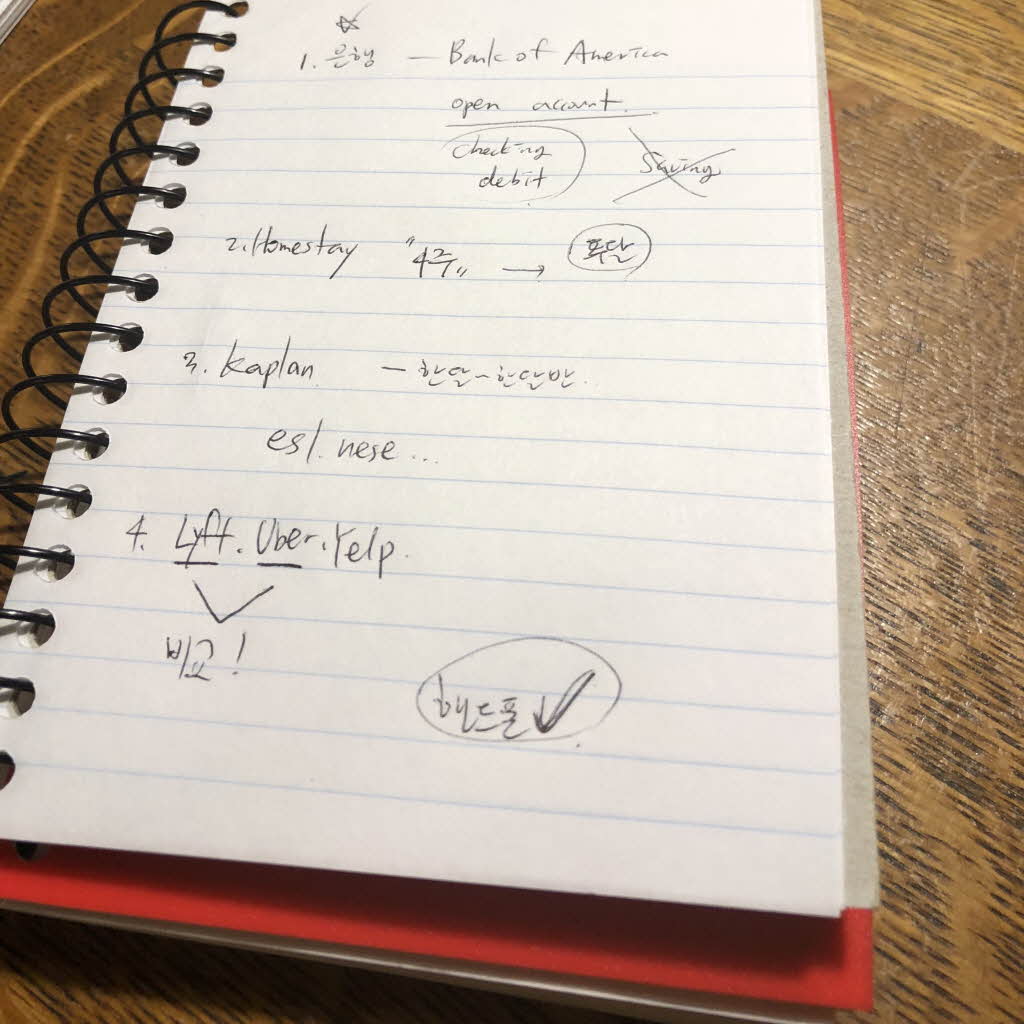 1. 은행 — Bank of America
open account.
checking
debit
Saving
2. Homestay "4주" → 푸달
3. Kaplan. — 한달~한달반.
esl. nese...
4. Lyft. Uber. Yelp.
비교!
핸드폰